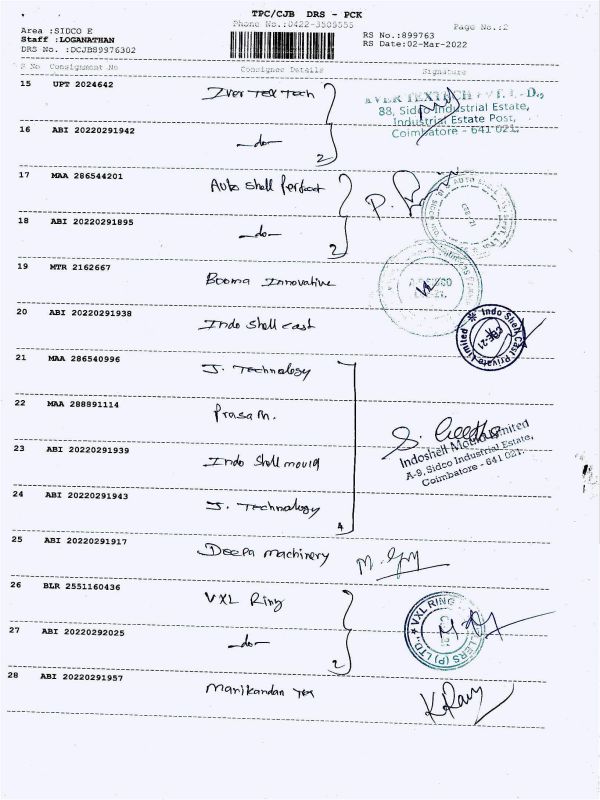 TPC/CJB DRS - PCK
Phone No.:0422-3505555
Page No.:2
Area :SIDCO E
Staff :LOGANATHAN
DRS No. :DCJB89976302
RS No.:899763
RS Date:02-Mar-2022
S No Consignment No Consignee Details Signature
15 UPT 2024642 Iver Tex Tech
EVER TEXTECH PVT. LTD.,
88, Sidco Industrial Estate,
Industrial Estate Post,
Coimbatore - 641 021.
16 ABI 20220291942 -do-
2
17 MAA 286544201 Auto Shell Perfect
18 ABI 20220291895 -do-
2
19 MTR 2162667 Booma Innovative
20 ABI 20220291938 Indo Shell Cast
Indo Shell Cast Private Limited
21 MAA 286540996 J. Technology
22 MAA 288891114 Prasam.
23 ABI 20220291939 Indo Shell mould
S. Geetha
Indoshell Mould Limited
A-9, Sidco Industrial Estate,
Coimbatore - 641 021.
24 ABI 20220291943 J. Technology
4
25 ABI 20220291917 Deepa machinery
26 BLR 2551160436 VXL Ring
VXL RING
27 ABI 20220292025 -do-
2
28 ABI 20220291957 Manikandan Tex
K.Ravi